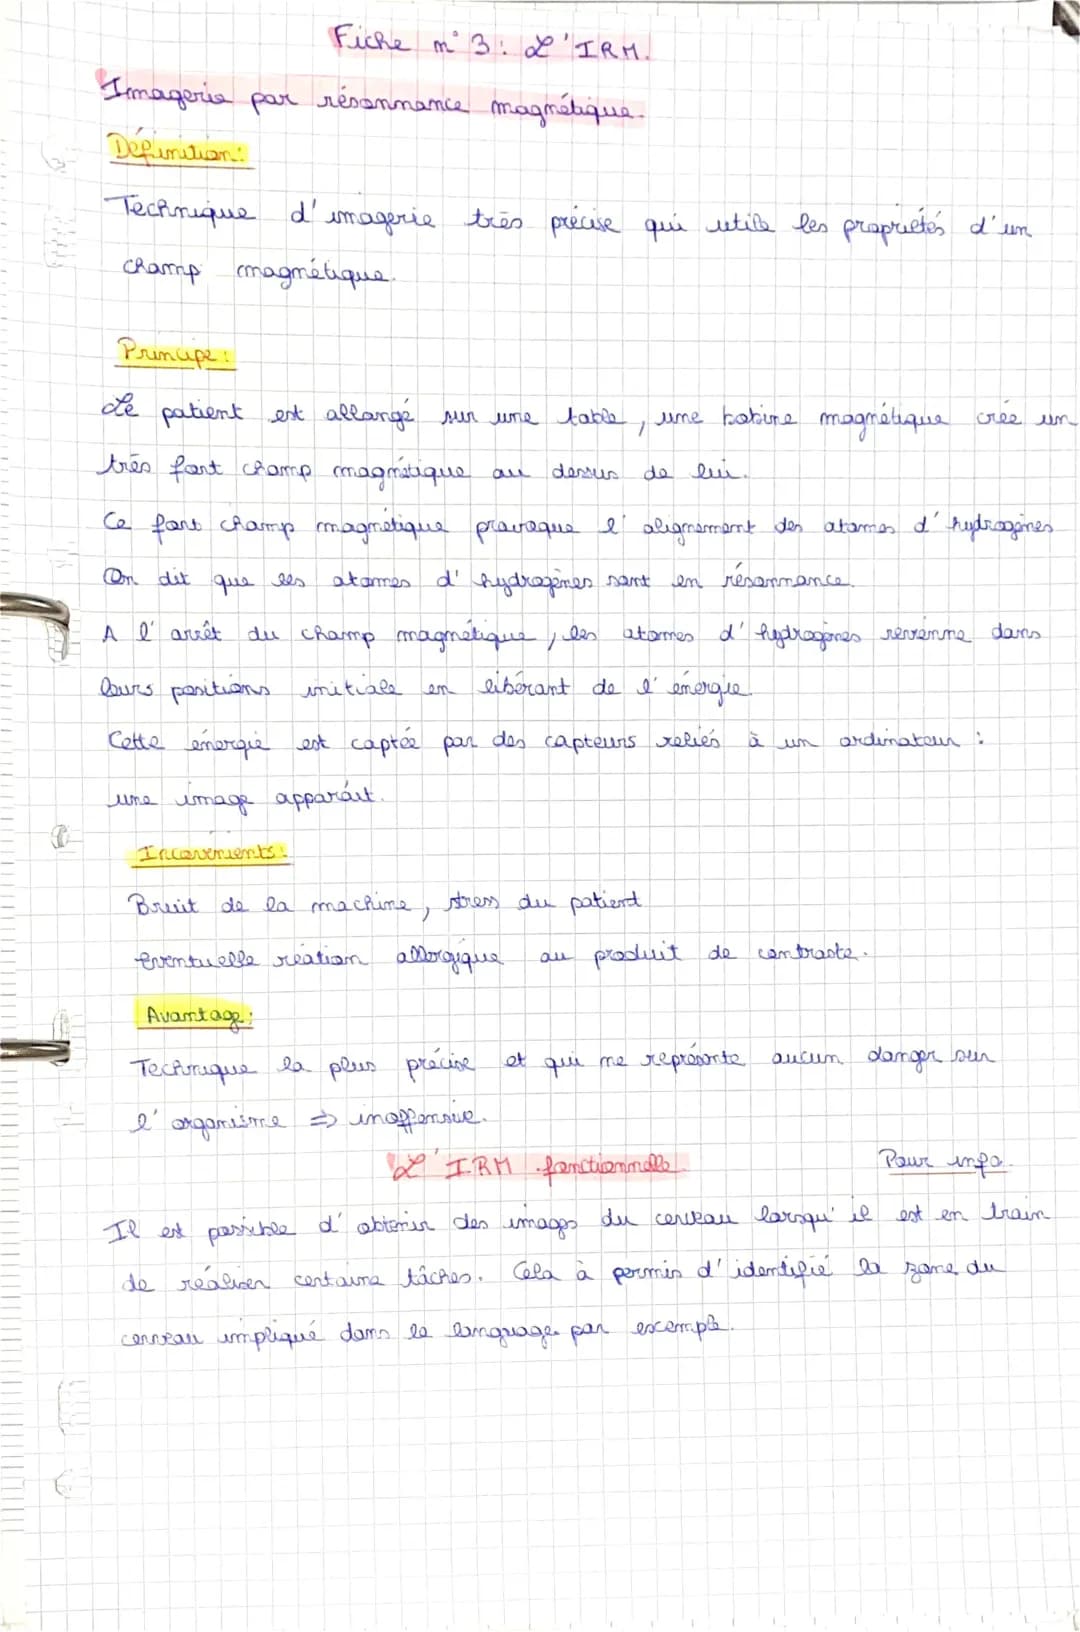 Fiche n° 3 : L'IRM.
Imagerie par résonnance magnétique.
Définition :
Technique d'imagerie très précise qui utile les propriétés d'un
champ magnétique.
Principe :
Le patient est allongé sur une table, une bobine magnétique crée un
très fort champ magnétique au dessus de lui.
Ce fort champ magnétique provoque l'alignement des atomes d'hydrogènes
On dit que les atomes d'hydrogènes sont en résonnance.
A l'arrêt du champ magnétique, les atomes d'hydrogènes revienne dans
leurs positions initiale en libérant de l'énergie.
Cette énergie est captée par des capteurs reliés à un ordinateur :
une image apparaît.
Inconvénients :
Bruit de la machine, stress du patient
éventuelle réation allergique au produit de contraste.
Avantage :
Technique la plus précise et qui ne représente aucun danger sur
l'organisme => inoffensive.
L'IRM fonctionnelle
Pour info.
Il est possible d'obtenir des images du cerveau lorsqu'il est en train
de réaliser certaine tâches. Cela à permis d'identifié la zone du
cerveau impliqué dans le language par exemple.